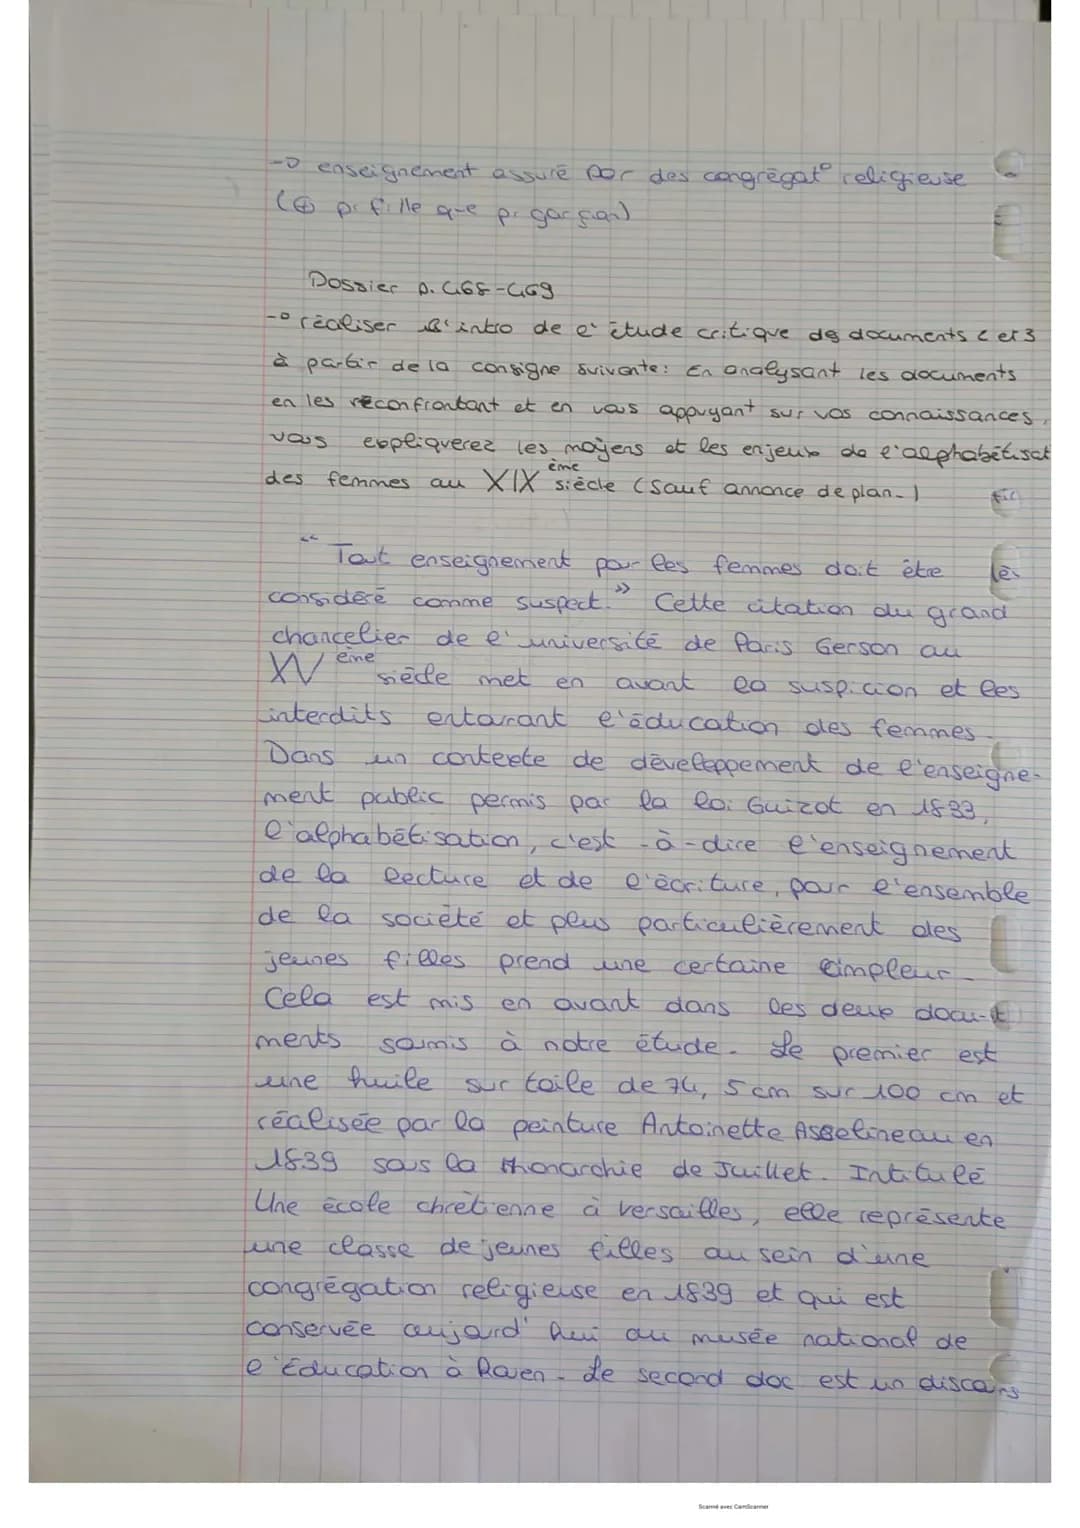 -o enseignement assuré par des congrégat° religieuse
(⊕ p. fille que p. garçon)
Dossier p. 468-469
-o réaliser l'intro de l'étude critique des documents 2 et 3
à partir de la consigne suivante: En analysant les documents
en les reconfrontant et en vous appuyant sur vos connaissances,
vous expliquerez les moyens et les enjeux de l'alphabétisat
des femmes au XIX ème siècle (sauf annonce de plan.)
" Tout enseignement pour les femmes doit être
considéré comme suspect. " Cette citation du grand
chancelier de l'université de Paris Gerson au
XV ème siècle met en avant la suspicion et les
interdits entourant l'éducation des femmes.
Dans un contexte de développement de l'enseigne-
ment public permis par la loi Guizot en 1833,
l'alphabétisation, c'est-à-dire l'enseignement
de la lecture et de l'écriture, pour l'ensemble
de la société et plus particulièrement des
jeunes filles prend une certaine ampleur.
Cela est mis en avant dans les deux docu-
ments soumis à notre étude. Le premier est
une huile sur toile de 74, 5 cm sur 100 cm et
réalisée par la peinture Antoinette Asselineau en
1839 sous la Monarchie de Juillet. Intitulé
Une école chrétienne à versailles, elle représente
une classe de jeunes filles au sein d'une
congrégation religieuse en 1839 et qui est
conservée aujourd'hui au musée national de
l'Education à Rouen. Le second doc est un discours
Scanné avec CamScanner